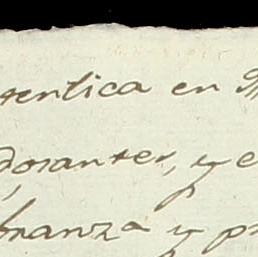 tentica en
dorantes, y e
branza y pr